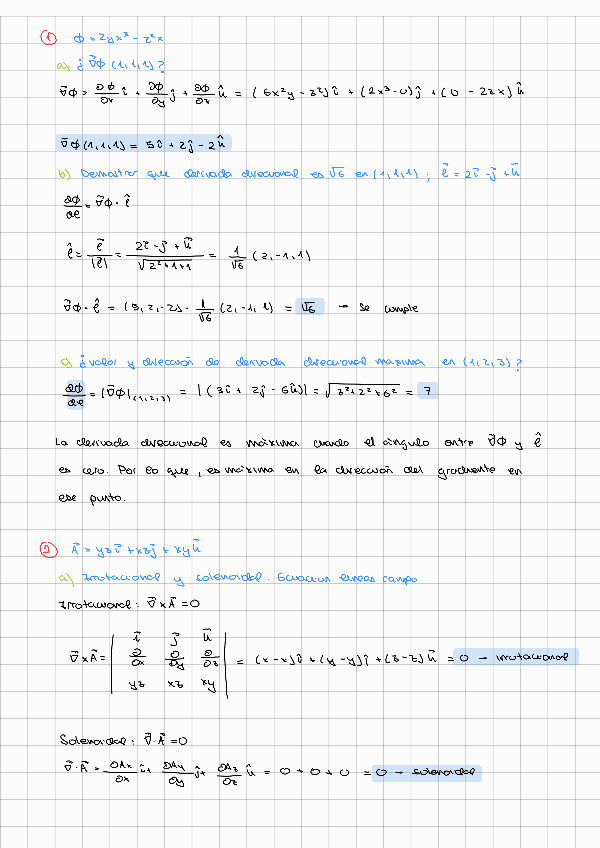 ① ϕ = 2yx³ − z²x
a) ¿ ∇⃗ϕ (1,1,1)?
∇⃗ϕ = ∂ϕ/∂x î + ∂ϕ/∂y ĵ + ∂ϕ/∂z k̂ = (6x²y − z²) î + (2x³−0) ĵ + (0 − 2zx) k̂
∇⃗ϕ (1,1,1) = 5î + 2ĵ − 2k̂
b) Demostrar que derivada direccional es √6 en (1,1,1) ; e⃗ = 2i⃗ − j⃗ + k⃗
∂ϕ/∂e = ∇⃗ϕ · ê
ê = e⃗/|e⃗| = (2i⃗ − j⃗ + k⃗)/√(2²+1+1) = 1/√6 (2,−1,1)
∇⃗ϕ · ê = (5,2,−2) · 1/√6 (2,−1,1) = √6 → se cumple
c) ¿valor y dirección de derivada direccional maxima en (1,2,3)?
∂ϕ/∂e = |∇⃗ϕ|(1,2,3) = |(3î + 2ĵ − 6k̂)| = √(3²+2²+6²) = 7
La derivada direccional es máxima cuando el ángulo entre ∇⃗ϕ y ê
es cero. Por lo que, es máxima en la dirección del gradiente en
ese punto.
② A⃗ = yz i⃗ + xz j⃗ + xy k⃗
a) Irrotacional y solenoidal. Ecuacion lineas campo
Irrotacional: ∇⃗ × A⃗ = 0
∇⃗ × A⃗ = | i⃗ j⃗ k⃗ ; ∂/∂x ∂/∂y ∂/∂z ; yz xz xy | = (x−x) î + (y−y) ĵ + (z−z) k̂ = 0 → irrotacional
Solenoidal: ∇⃗ · A⃗ = 0
∇⃗ · A⃗ = ∂Ax/∂x î + ∂Ay/∂y ĵ + ∂Az/∂z k̂ = 0 + 0 + 0 = 0 → solenoidal